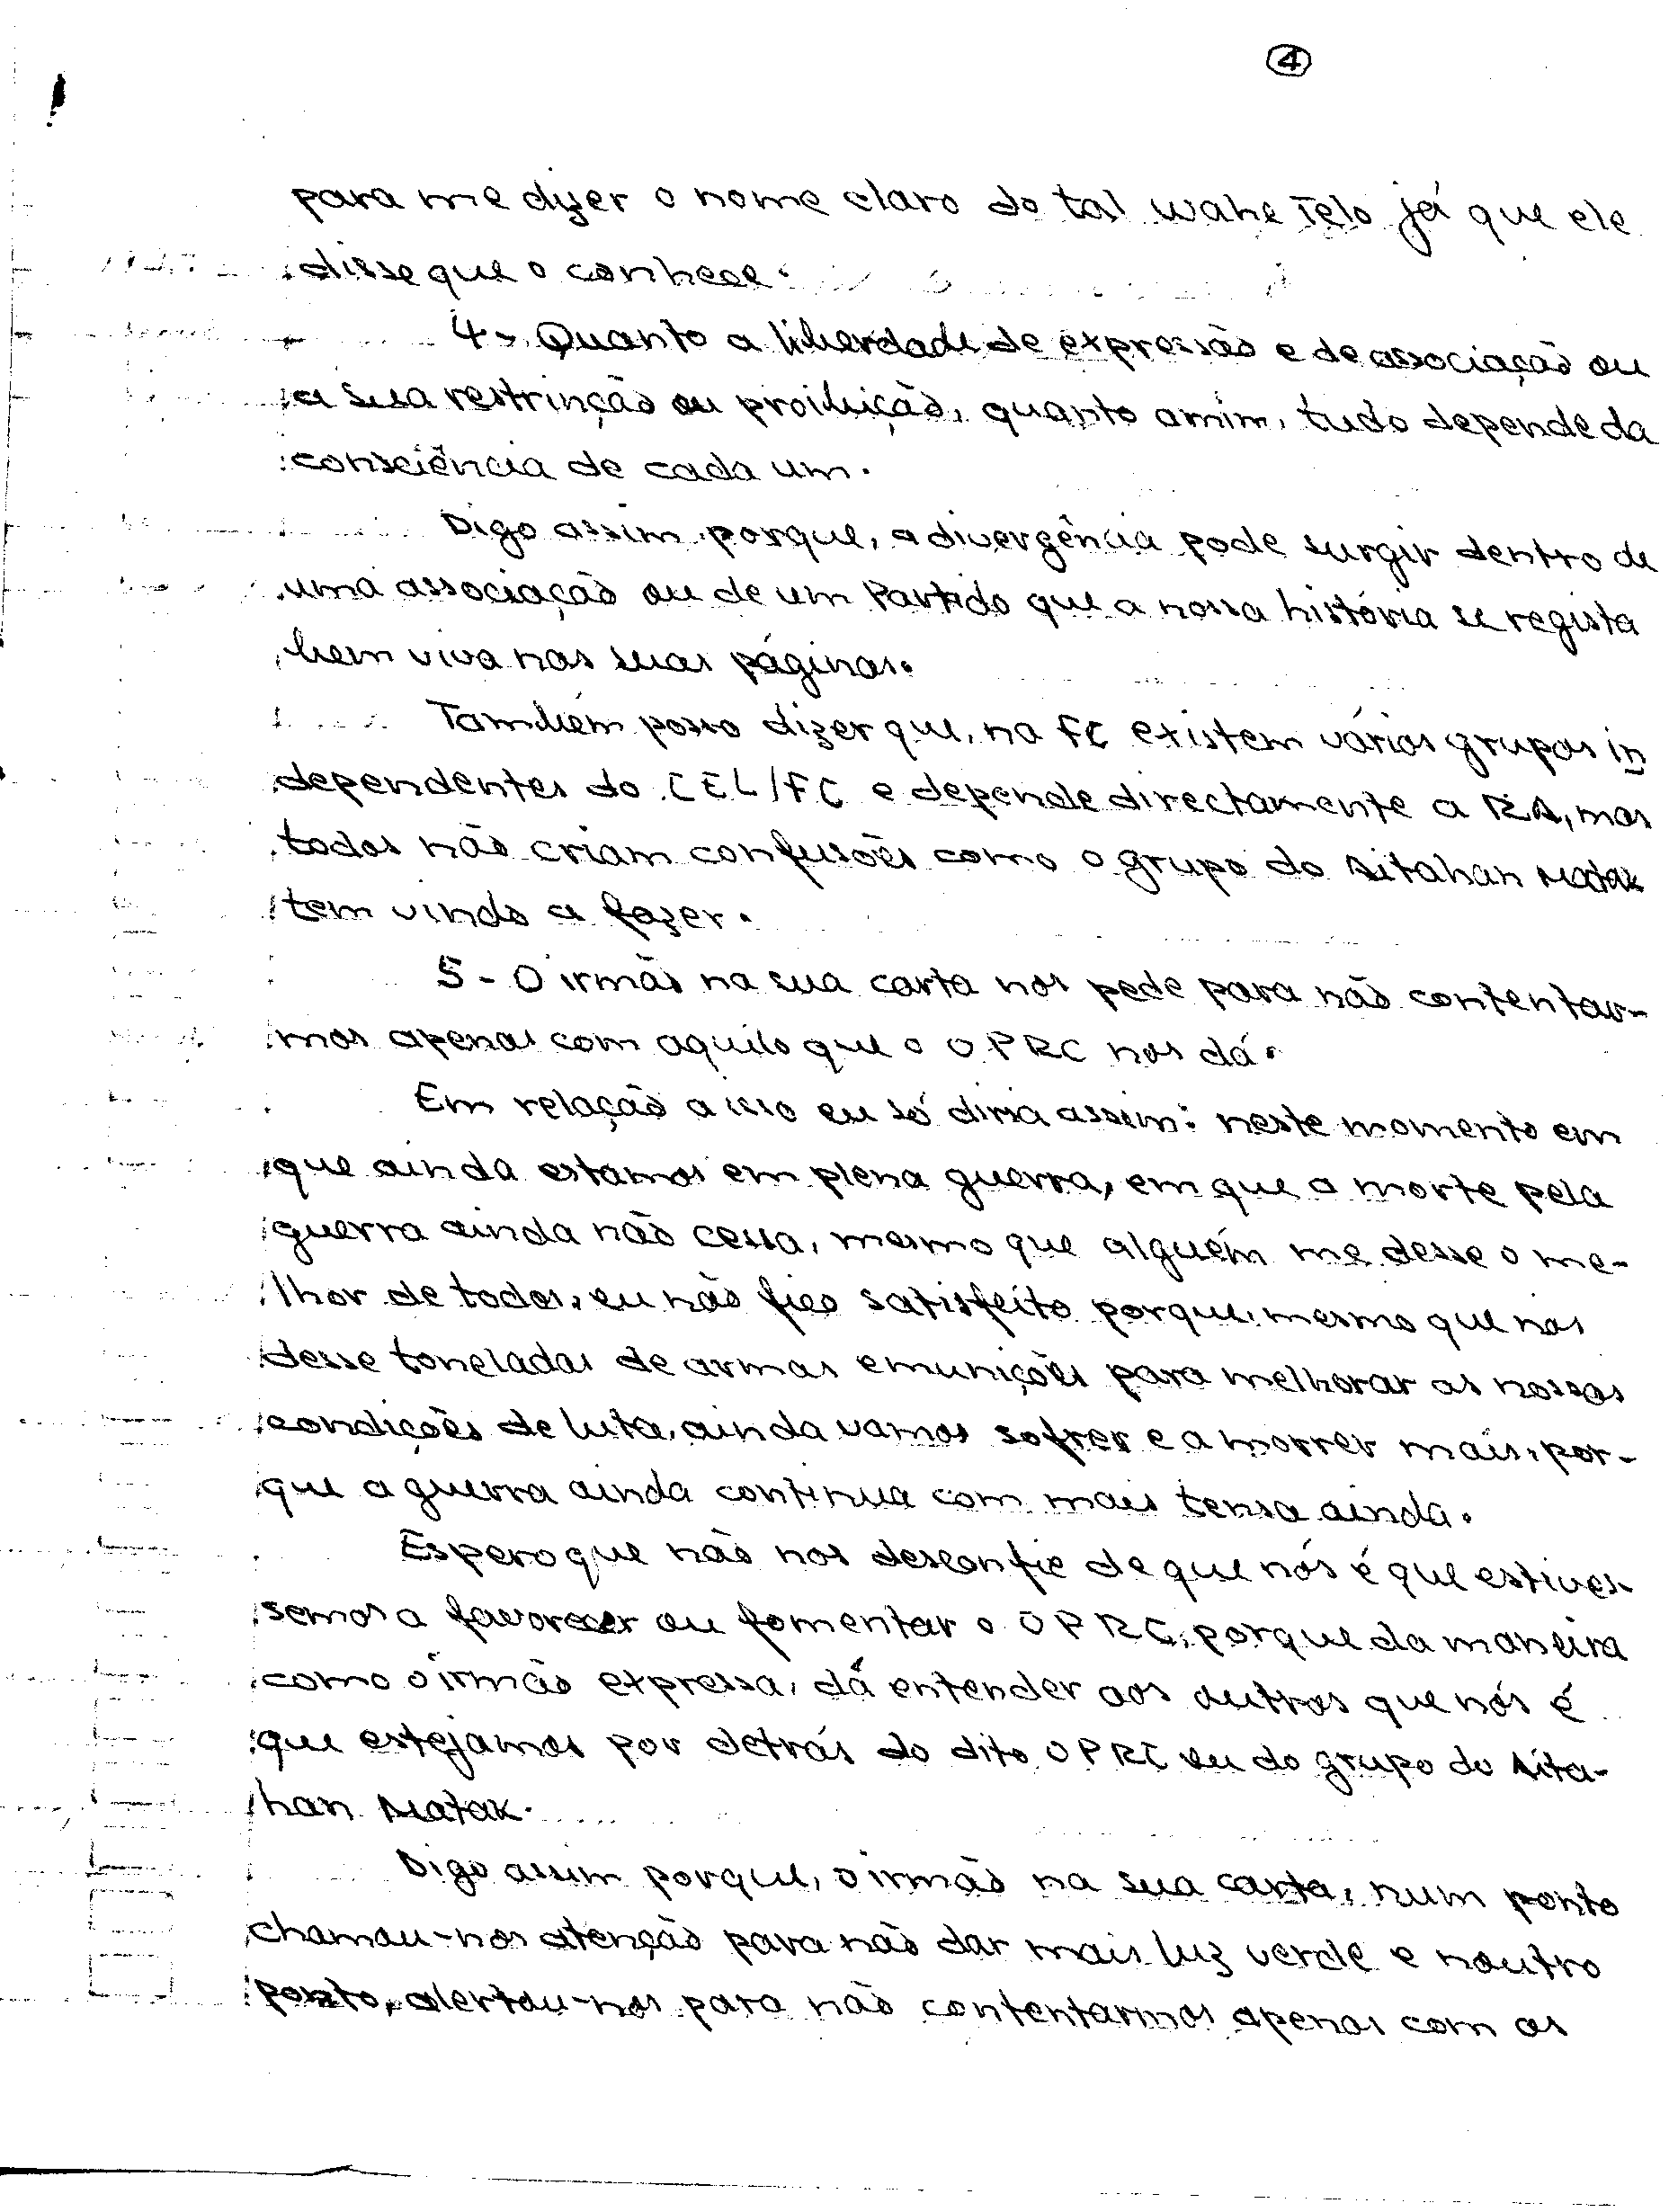 4
para me dizer o nome claro do tal Wake Telo já que ele
disse que o conhece.
4- Quanto a liberdade de expressão e de associação ou
a sua restrinção ou proibição, quanto amim, tudo depende da
consciência de cada um.
Digo assim porque, a divergência pode surgir dentro de
uma associação ou de um Partido que a nossa história se regista
bem viva nas suas páginas.
Também posso dizer que, na FC existem vários grupos in
dependentes do CEL/FC e depende directamente a RA, mas
todos não criam confusões como o grupo do Sitahan Matak
tem vindo a fazer.
5- O irmão na sua carta nos pede para não contentar-
mos apenas com aquilo que o OPRC nos dá.
Em relação a isso eu só diria assim: neste momento em
que ainda estamos em plena guerra, em que a morte pela
guerra ainda não cessa, mesmo que alguém me desse o me-
lhor de todos, eu não fico satisfeito porque, mesmo que nos
desse toneladas de armas e munições para melhorar as nossas
condições de luta, ainda vamos sofrer e a morrer mais, por-
que a guerra ainda continua com mais tensa ainda.
Espero que não nos desconfie de que nós é que estives-
semos a favorecer ou fomentar o OPRC, porque da maneira
como o irmão expressa, dá entender aos outros que nós é
que estejamos por detrás do dito OPRC ou do grupo do Sita-
han Matak.
Digo assim porque, o irmão na sua carta, num ponto
chamou-nos atenção para não dar mais luz verde e noutro
ponto, alertou-nos para não contentarmos apenas com as